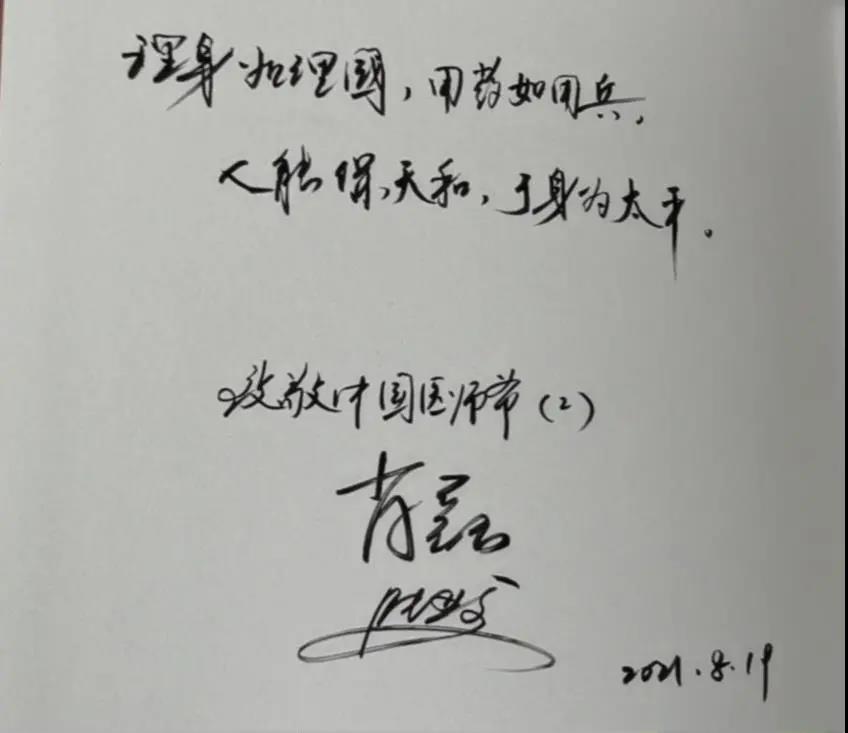 理身如理國，用药如用兵，
人能保天和，于身为太平。
致敬中国医师节（2）
肖磊
2021.8.19